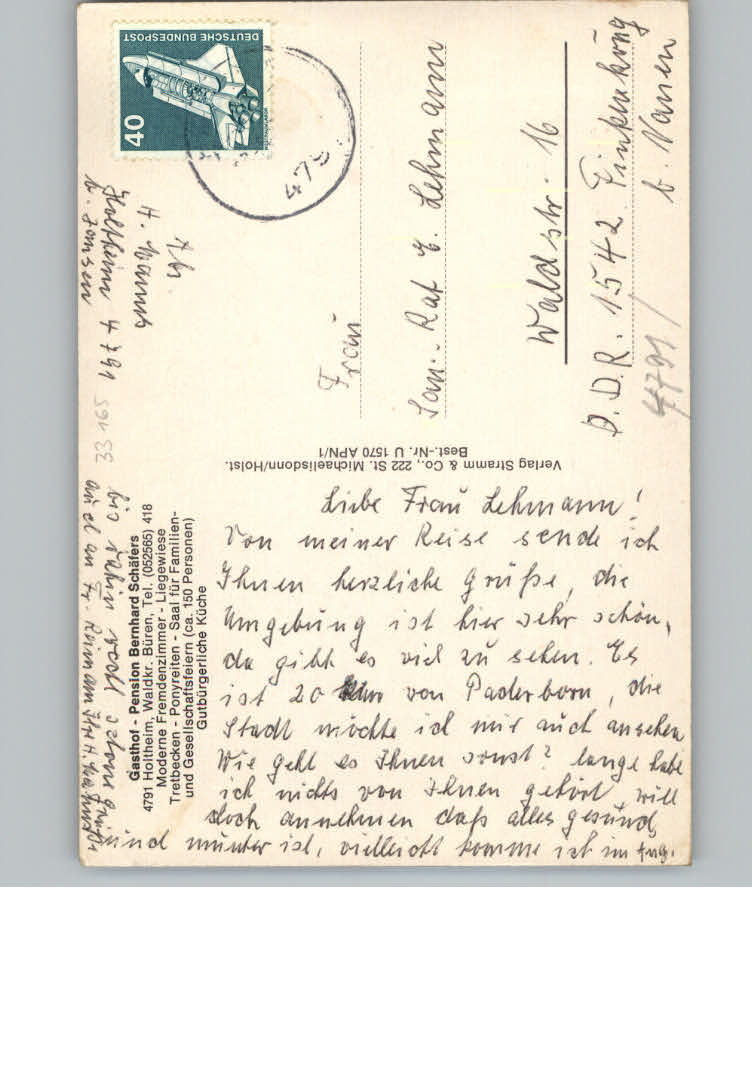 DEUTSCHE BUNDESPOST
40
479
Abs.
H.
Holtheim 4791
b. Jansen
Frau
San.-Rat E. Lehmann
Waldstr. 16
D.D.R. 1542 Finkenkrug
b. Nauen
4791/
33165
Verlag Stramm & Co., 222 St. Michaelisdonn/Holst.
Best.-Nr. U 1570 APN/1
Gasthof - Pension Bernhard Schäfers
4791 Holtheim, Waldkr. Büren, Tel. (052565) 418
Moderne Fremdenzimmer - Liegewiese
Tretbecken - Ponyreiten - Saal für Familien-
und Gesellschaftsfeiern (ca. 150 Personen)
Gutbürgerliche Küche
Liebe Frau Lehmann!
Von meiner Reise sende ich
Ihnen herzliche Grüße, die
Umgebung ist hier sehr schön,
da gibt es viel zu sehen. Es
ist 20 von Paderborn, die
Stadt möchte ich mir auch ansehen
Wie geht es Ihnen sonst? lange habe
ich nichts von Ihnen gehört, will
doch annehmen daß alles gesund
und munter ist, vielleicht komme ich im Aug.
bis dahin recht schöne Grüße
auch an Fr.